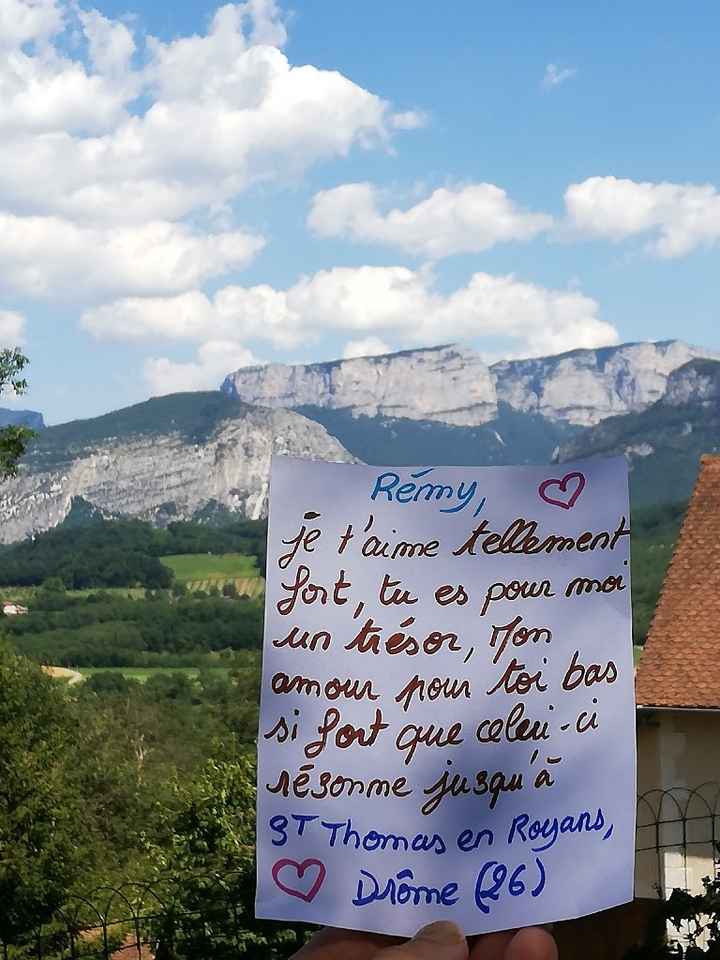 Rémy,
je t'aime tellement
fort, tu es pour moi
un trésor, Mon
amour pour toi bas
si fort que celui-ci
résonne jusqu'à
ST Thomas en Royans,
Drôme (26)